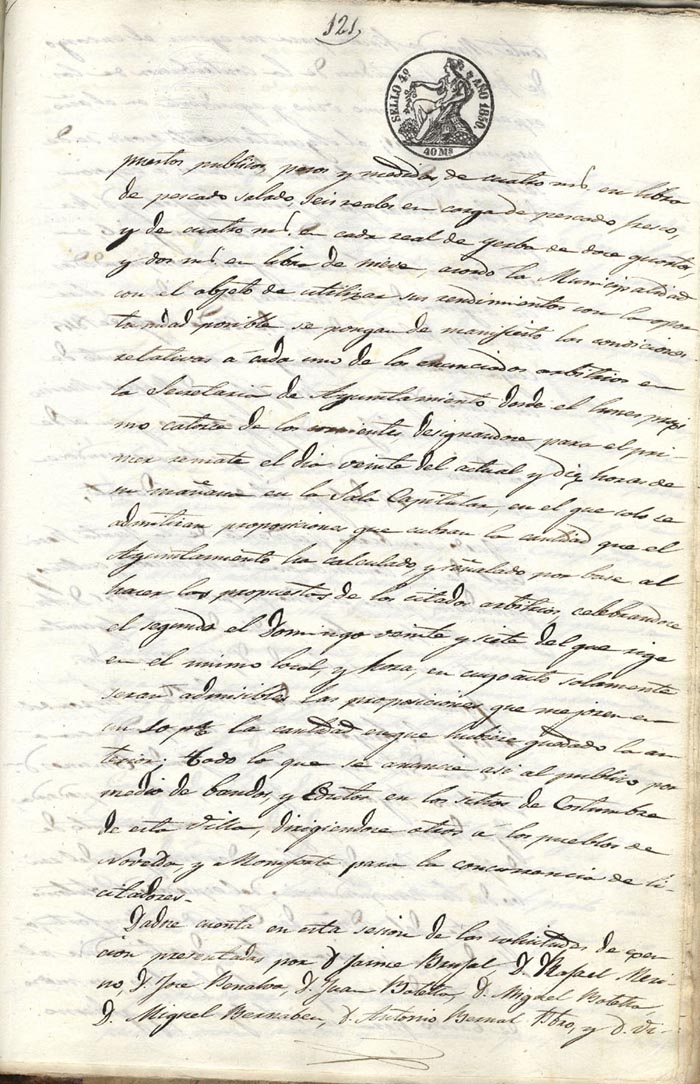 121,
SELLO 4º AÑO 1850.
40 Ms
puestos publicos, pesos y medidas, de cuatro ms. en libra
de pescado salado, seis reales en carga de pescado fresco,
y de cuatro ms. en cada real de yerba de doce quartos
y dos ms. en libra de nieve, acordó la Municipalidad
con el objeto de utilizar sus rendimientos con la opor
tunidad posible se pongan de manifiesto las condiciones
relativas á cada uno de los enunciados arbitrios en
la Secretaria de Ayuntamiento desde el lunes procsi
mo catorce de los corrientes, designandose para el pri-
mer remate el dia veinte del actual y diez horas de
su mañana en la Sala Capitular, en el que solo se
admitiran proposiciones que cubran la cantidad que el
Ayuntamiento ha calculado y señalado por base al
hacer las propuestas de los citados arbitrios celebrandose
el segundo el Domingo veinte y siete del que rige
en el mismo local, y hora, en cuyo acto solamente
seran admisibles las proposiciones que mejoren en
un 10 p% la cantidad en que hubiese quedado la an
terior; todo lo que se anuncie asi al publico por
medio de bandos, y Edictos en los sitios de Costumbre
de esta Villa, dirigiendose otros a los pueblos de
Novelda, y Monforte para la concurrencia de li-
citadores.-
Dadose cuenta en esta sesion de las solicitudes de esen-
cion presentadas por D. Jaime Brufal, D. Rafael Meri-
no, D. Jose Penalva, D. Juan Botella, D. Miguel Botella
D. Miguel Bernabeu, D. Antonio Bernal Pbro, y D. Vi-